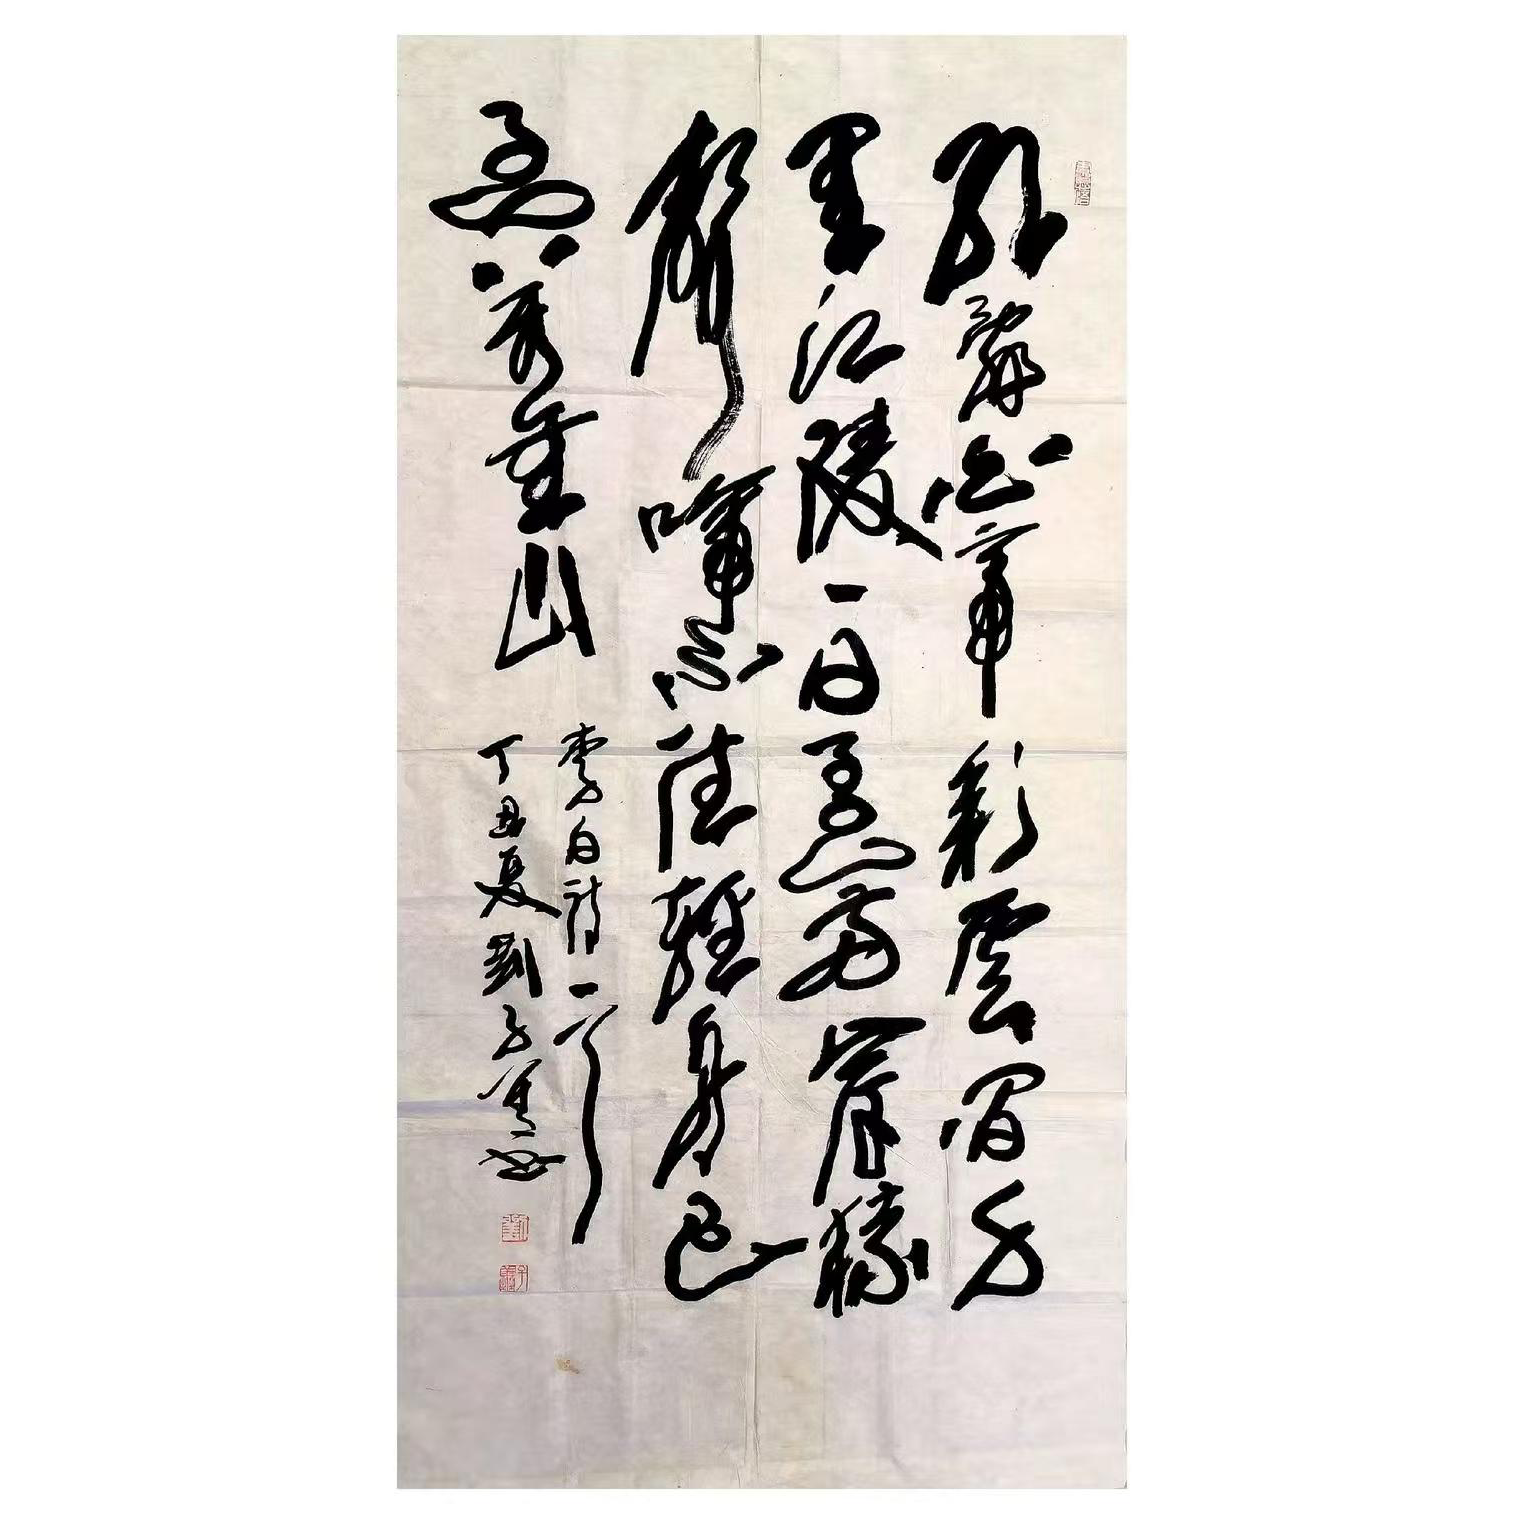 朝辭白帝彩雲間千
里江陵一日還兩岸猿
聲啼不住輕舟已
過萬重山
李白詩一首
丁丑夏劉子書